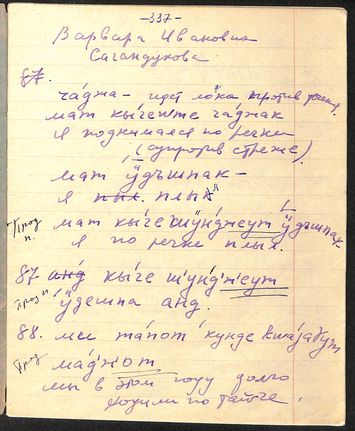 -337-
Варвара Ивановна
Сагандукова
87.
ча́джа - идет ло́ка против течения,
мат кы́гент́е ча́джак
я поднимался по речки
(супротив стреже)
мат ӱ́дъшпак -
я плыл
Прод п. мат кы́ге шӱ́нджеут ӱ́дъшпак
я по речке плыл.
87 кы́ге шӱ́нджеут
Прод п ӱ́дешпа анд.
88. ми та́пот кунде
Прод ма́джот
мы в этом году долго
ходили по тайге.